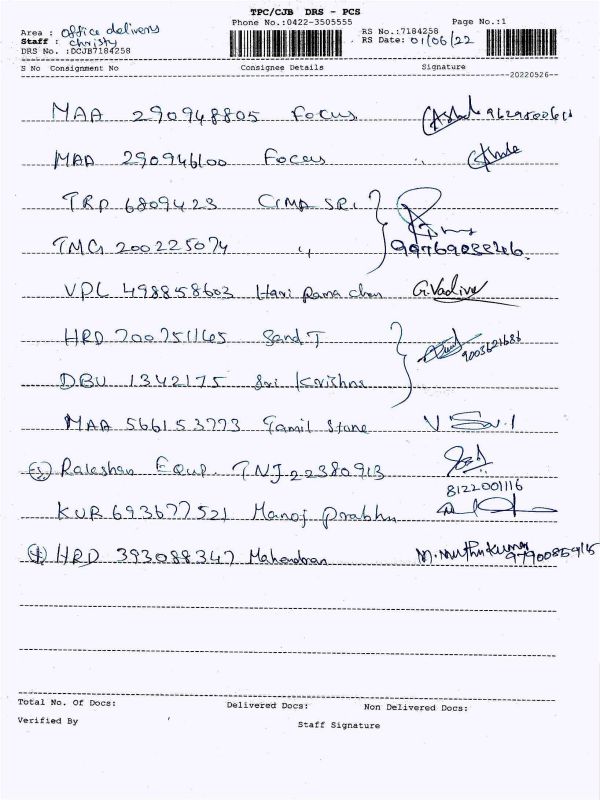 TPC/CJB DRS - PCS
Phone No.:0422-3505555 Page No.:1
Area : office delivery
Staff : christy
DRS No. :DCJB7184258
RS No.:7184258
RS Date: 01/06/22
S No Consignment No Consignee Details Signature
20220526
MAA 290948805 Focus
MAA 290946100 Focus "
TRP 6809423 CIMA SRI
TMG 200225074 "
VPL 498858603 Hari Rama chan G.Vadivel
HRD 200751165 Sand T
DBU 1342175 Sri Krishna 9003621686
MAA 566153773 Tamil Stone
Equp. TNJ 22380913
8122001116
KUR 693677521 Manoj prabhu
HRD 393088347 Mahendran M. Muthukumar
Total No. Of Docs: Delivered Docs: Non Delivered Docs:
Verified By Staff Signature